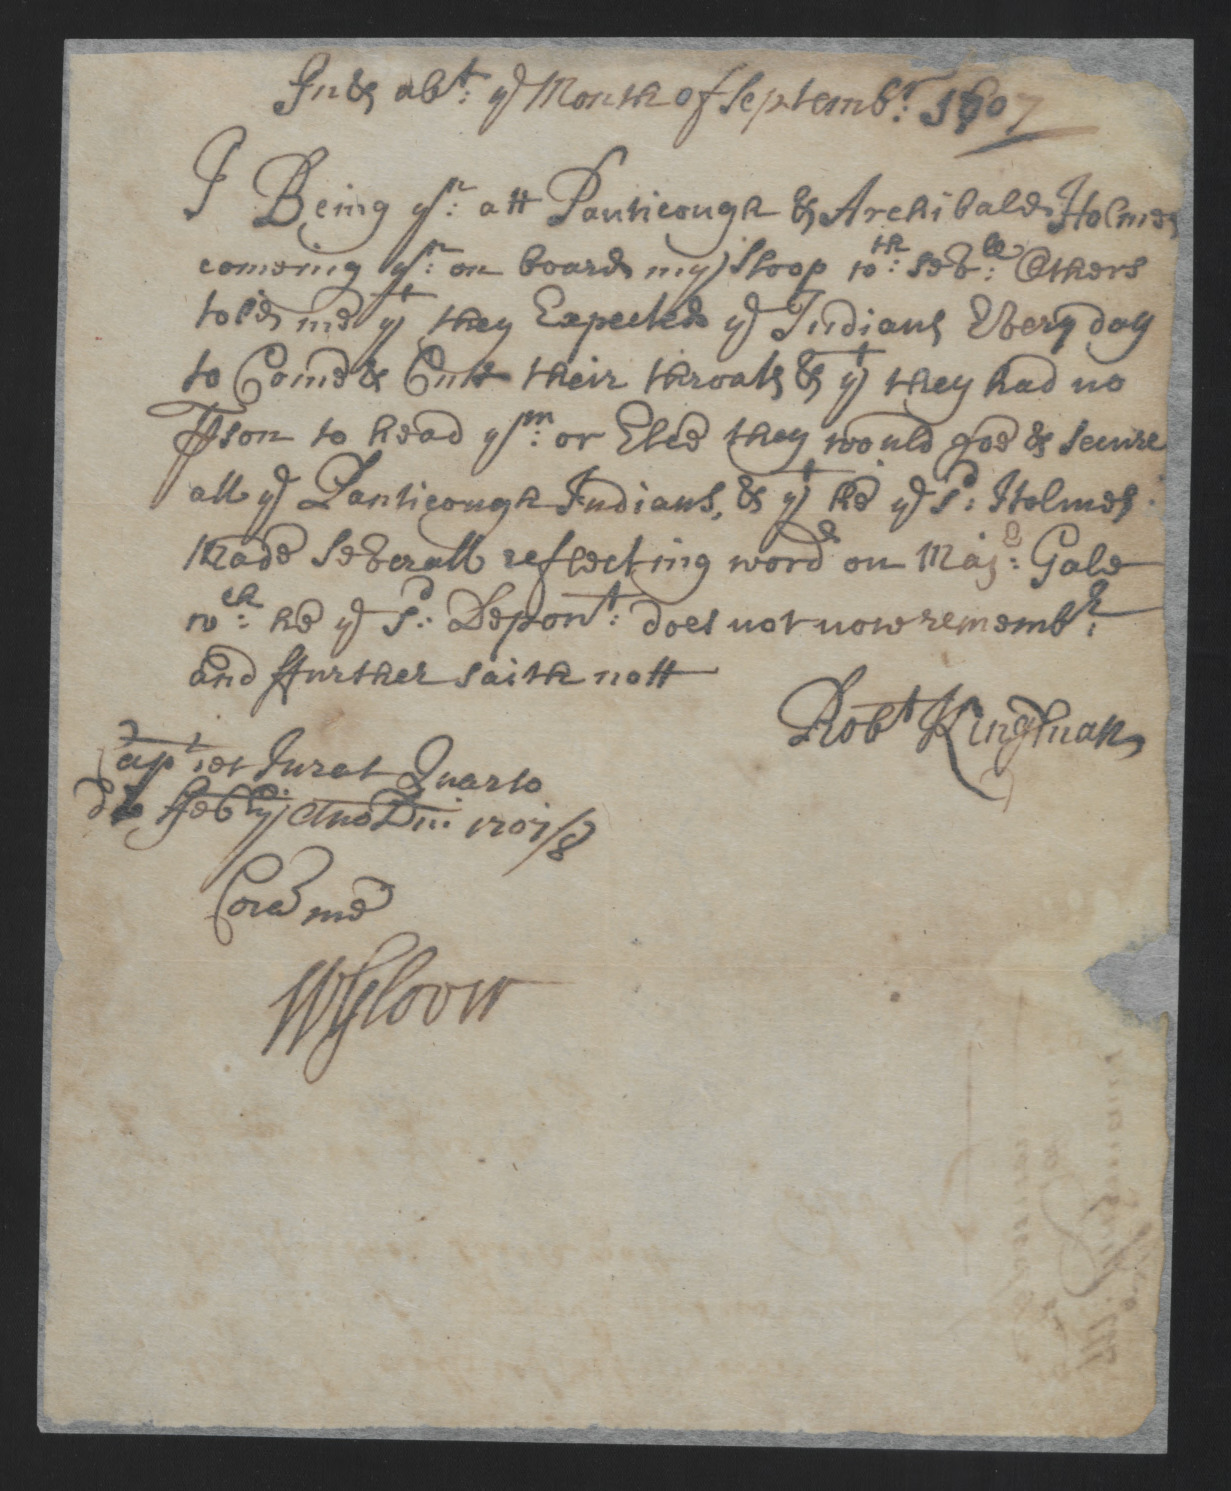 In & abt: ye Month of Septembr: 1707
I Being yr: att Panticough & Archibald Holmes
comeing yr: on board my Sloop wth: sevle: Others
told me yt they Expected ye Indians Every day
to Come & Cutt their throats & yt they had no
Pson to head ym: or Else they would goe & secure
all ye Panticough Indians, & yt he ye sd: Holmes
made Severall reflecting words on Majr: Gale
wch: he ye sd: Depont: does not now remembr:
and ffurther saith nott
Robt Kingman
Capt: et Jurat Quarto
die Febry Ano Dni: 1707/8
Cora me
WGlover